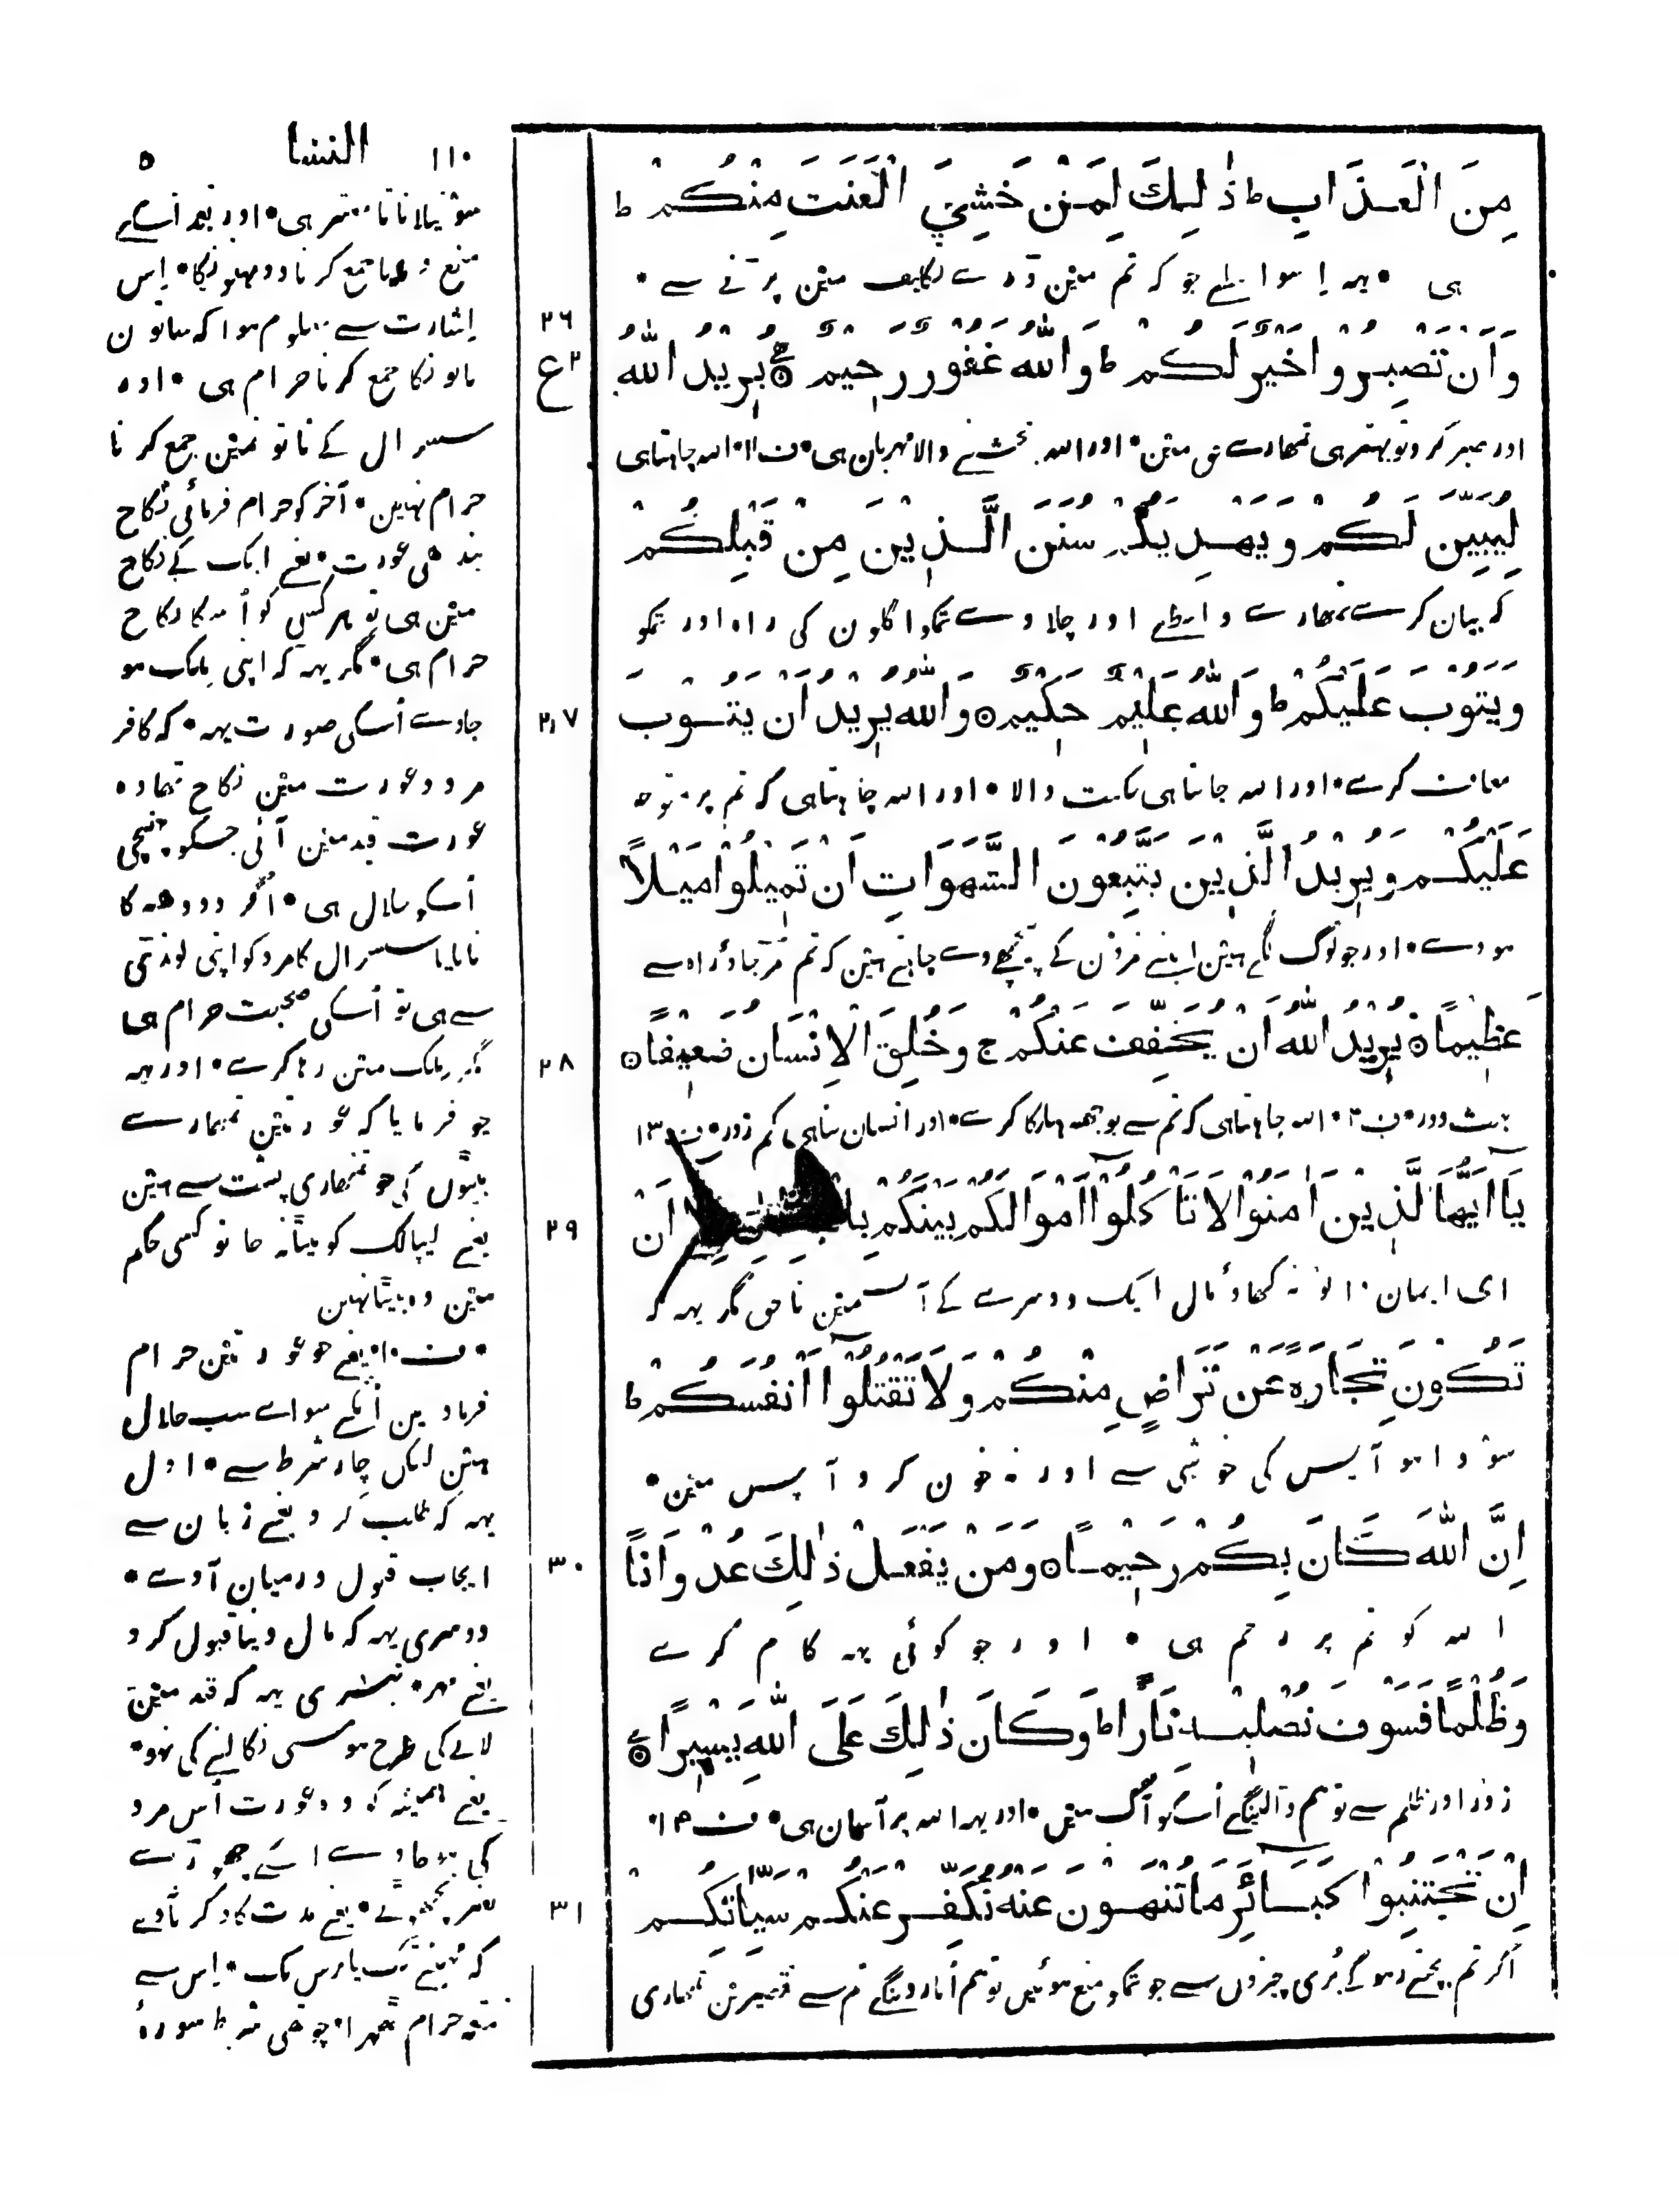 ۱۱۰ النسا ۵
مِنَ الْعَذَابِ ط ذٰلِكَ لِمَنْ خَشِيَ الْعَنَتَ مِنْكُمْ ط
ہی • یہہ اسواسطے جو کہ تم مین ڈرے تکلیف مین پڑنے سے •
۲۶
وَاَنْ تَصْبِرُوا خَيْرٌ لَكُمْ ط وَاللّٰهُ غَفُورٌ رَحِيمٌ يُرِيْدُ اللّٰهُ
ع ۲
اور صبر کرو تو بہتر ہی تمھارے حق مین • اور اللہ بخشنے والا مہربان ہی • ف ۱۱ • اللہ چاہتا ہی
لِيُبَيِّنَ لَكُمْ وَيَهْدِيَكُمْ سُنَنَ الَّذِيْنَ مِنْ قَبْلِكُمْ
کہ بیان کرے تمھارے واسطے اور چلاوے تمکو اگلون کی راہ اور تمکو
وَيَتُوْبَ عَلَيْكُمْ ط وَاللّٰهُ عَلِيْمٌ حَكِيْمٌ ۝ وَاللّٰهُ يُرِيْدُ اَنْ يَتُوْبَ
۲۷
معاف کرے • اور اللہ جانتا ہی حکمت والا • اور اللہ چاہتا ہی کہ تم پر متوجہ
عَلَيْكُمْ وَيُرِيْدُ الَّذِيْنَ يَتَّبِعُوْنَ الشَّهَوَاتِ اَنْ تَمِيْلُوْا مَيْلًا
ہووے • اور جو لوگ لگے ہین اپنے مزون کے پیچھے وے چاہتے ہین کہ تم مڑجاؤ راہ سے
عَظِيْمًا ۝ يُرِيْدُ اللّٰهُ اَنْ يُخَفِّفَ عَنْكُمْ ج وَخُلِقَ الْاِنْسَانُ ضَعِيْفًا ۝
۲۸
بہت دور • ف ۱۲ • اللہ چاہتا ہی کہ تم سے بوجھہ ہلکا کرے • اور انسان بنا ہی کم زور • ف ۱۳
يَآ اَيُّهَا الَّذِيْنَ اٰمَنُوْا لَا تَاْكُلُوْآ اَمْوَالَكُمْ بَيْنَكُمْ اَنْ
۲۹
ای ایمان والو نہ کھاؤ مال ایک دوسرے کے آپس مین ناحق مگر یہہ کہ
تَكُوْنَ تِجَارَةً عَنْ تَرَاضٍ مِنْكُمْ وَلَا تَقْتُلُوْآ اَنْفُسَكُمْ ط
سودا ہو آپس کی خوشی سے اور نہ خون کرو آپس مین •
اِنَّ اللّٰهَ كَانَ بِكُمْ رَحِيْمًا ۝ وَمَنْ يَفْعَلْ ذٰلِكَ عُدْوَانًا
۳۰
اللہ کو تم پر رحم ہی • اور جو کوئی یہہ کام کرے
وَظُلْمًا فَسَوْفَ نُصْلِيْهِ نَارًا ط وَكَانَ ذٰلِكَ عَلَى اللّٰهِ يَسِيْرًا ۝
زور اور ظلم سے تو ہم ڈالینگے اُسکو آگ مین • اور یہہ اللہ پر آسان ہی • ف ۱۴ •
اِنْ تَجْتَنِبُوْا كَبَآئِرَ مَا تُنْهَوْنَ عَنْهُ نُكَفِّرْ عَنْكُمْ سَيِّاٰتِكُمْ
۳۱
اگر تم بچتے رہوگے بُری چیزون سے جو تمکو منع ہوئین تو ہم اُتار دینگے تم سے تقصیرین تمھاری
اور بعد اُسکے
منع جمع کرنا دو بہنونکا • اِس
اِشارت سے معلوم ہوا کہ ساتون
ناتونکا جمع کرنا حرام ہی • اور
سسرال کے ناتونمین جمع کرنا
حرام نہین • آخر کو حرام فرمائی نکاح
بندھی عورت • یعنے ایک کے نکاح
مین ہی تو ہر کسی کو اُسکا نکاح
حرام ہی • مگر یہہ کہ اپنی مِلک ہو
جاوے اُسکی صورت یہہ • کہ کافر
مرد و عورت مین نکاح تھا وہ
عورت قید مین آئی جسکو پہنچی
اُسکو حلال ہی • اگر دودھہ کا
ناتا یا سسرال کا مرد کو اپنی لونڈی
سے ہی تو اُسکی صحبت حرام ہی
مگر مِلک مین رہا کرے • اور یہہ
جو فرمایا کہ عورتین تمھارے
بیٹوں کی جو تمھاری پشت سے ہین
یعنے لیپالک کو بیٹا نہ جانو کسی حکم
مین وہ بیٹا نہین
• ف ۱۰ • یعنے جو عورتین حرام
فرمادین اُنکے سواے سب حلال
ہین لیکن چار شرط سے • اول
یہہ کہ طلب کرو یعنے زبان سے
ایجاب قبول درمیان آوے •
دوسری یہہ کہ مال دینا قبول کرو
یعنے مہر • تیسری یہہ کہ قید مین
لانے کی طرح ہو مستی نکالنے کی نہو •
یعنے ہمیشہ کو وہ عورت اُس مرد
کی ہو جاوے اُسکے چھوڑے
بغیر نچھوٹے • یعنے مدت کا ذکر نآوے
کہ مہینے تک یا برس تک • اِس سے
متعہ حرام ٹھہرا • چوتھی شرط سورۂ